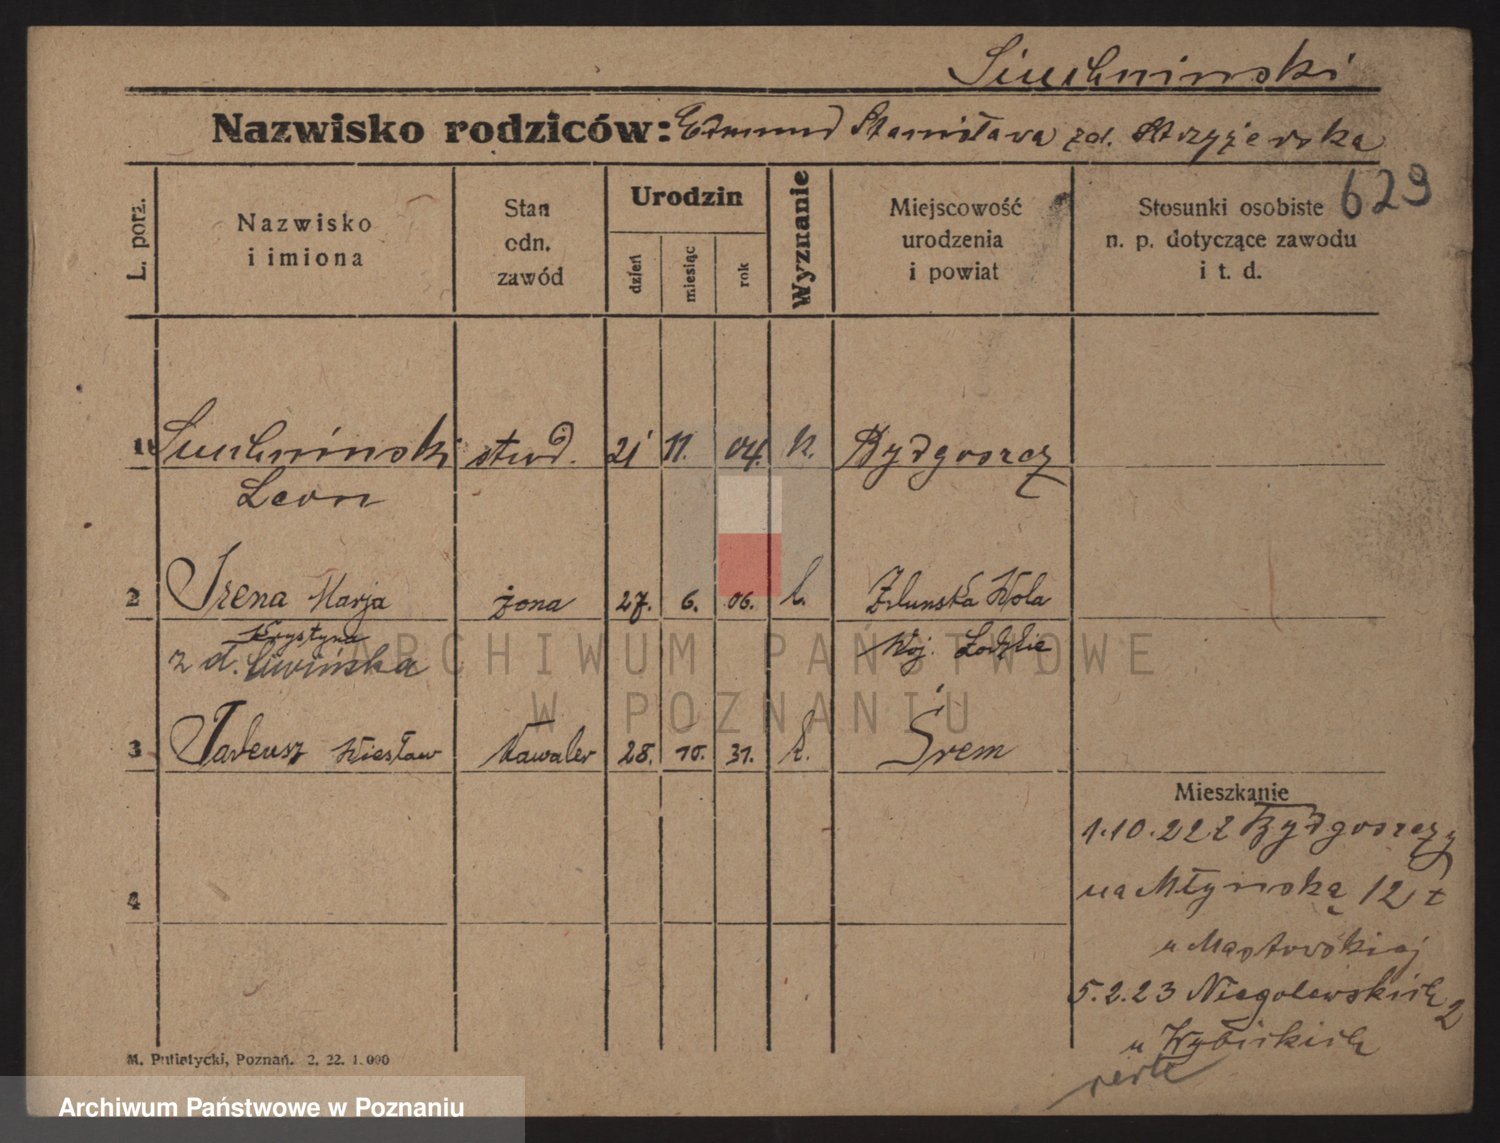 Siuchninski
Nazwisko rodziców: Edmund Stanisława zd. Strzyżewska
629
L. porz.
Nazwisko i imiona
Stan odn. zawód
Urodzin
dzień
miesiąc
rok
Wyznanie
Miejscowość urodzenia i powiat
Stosunki osobiste n. p. dotyczące zawodu i t. d.
1 Siuchninski stud. 21 11. 04. k. Bydgoszcz
Leon
2 Irena Marja żona 27. 6. 06. k. Zduńska Wola
Krystyna Woj. Łodzkie
z d. Liwińska
3 Tadeusz Wiesław kawaler 28. 10. 31. k. Śrem
Mieszkanie
1.10.22 z Bydgoszczy
na Młyńską 12
4
u
5.2.23 Niegolewskich 2
u Wybickich
M. Putiatycki, Poznań. 2. 22. 1.000
ARCHIWUM PAŃSTWOWE
W POZNANIU
Archiwum Państwowe w Poznaniu